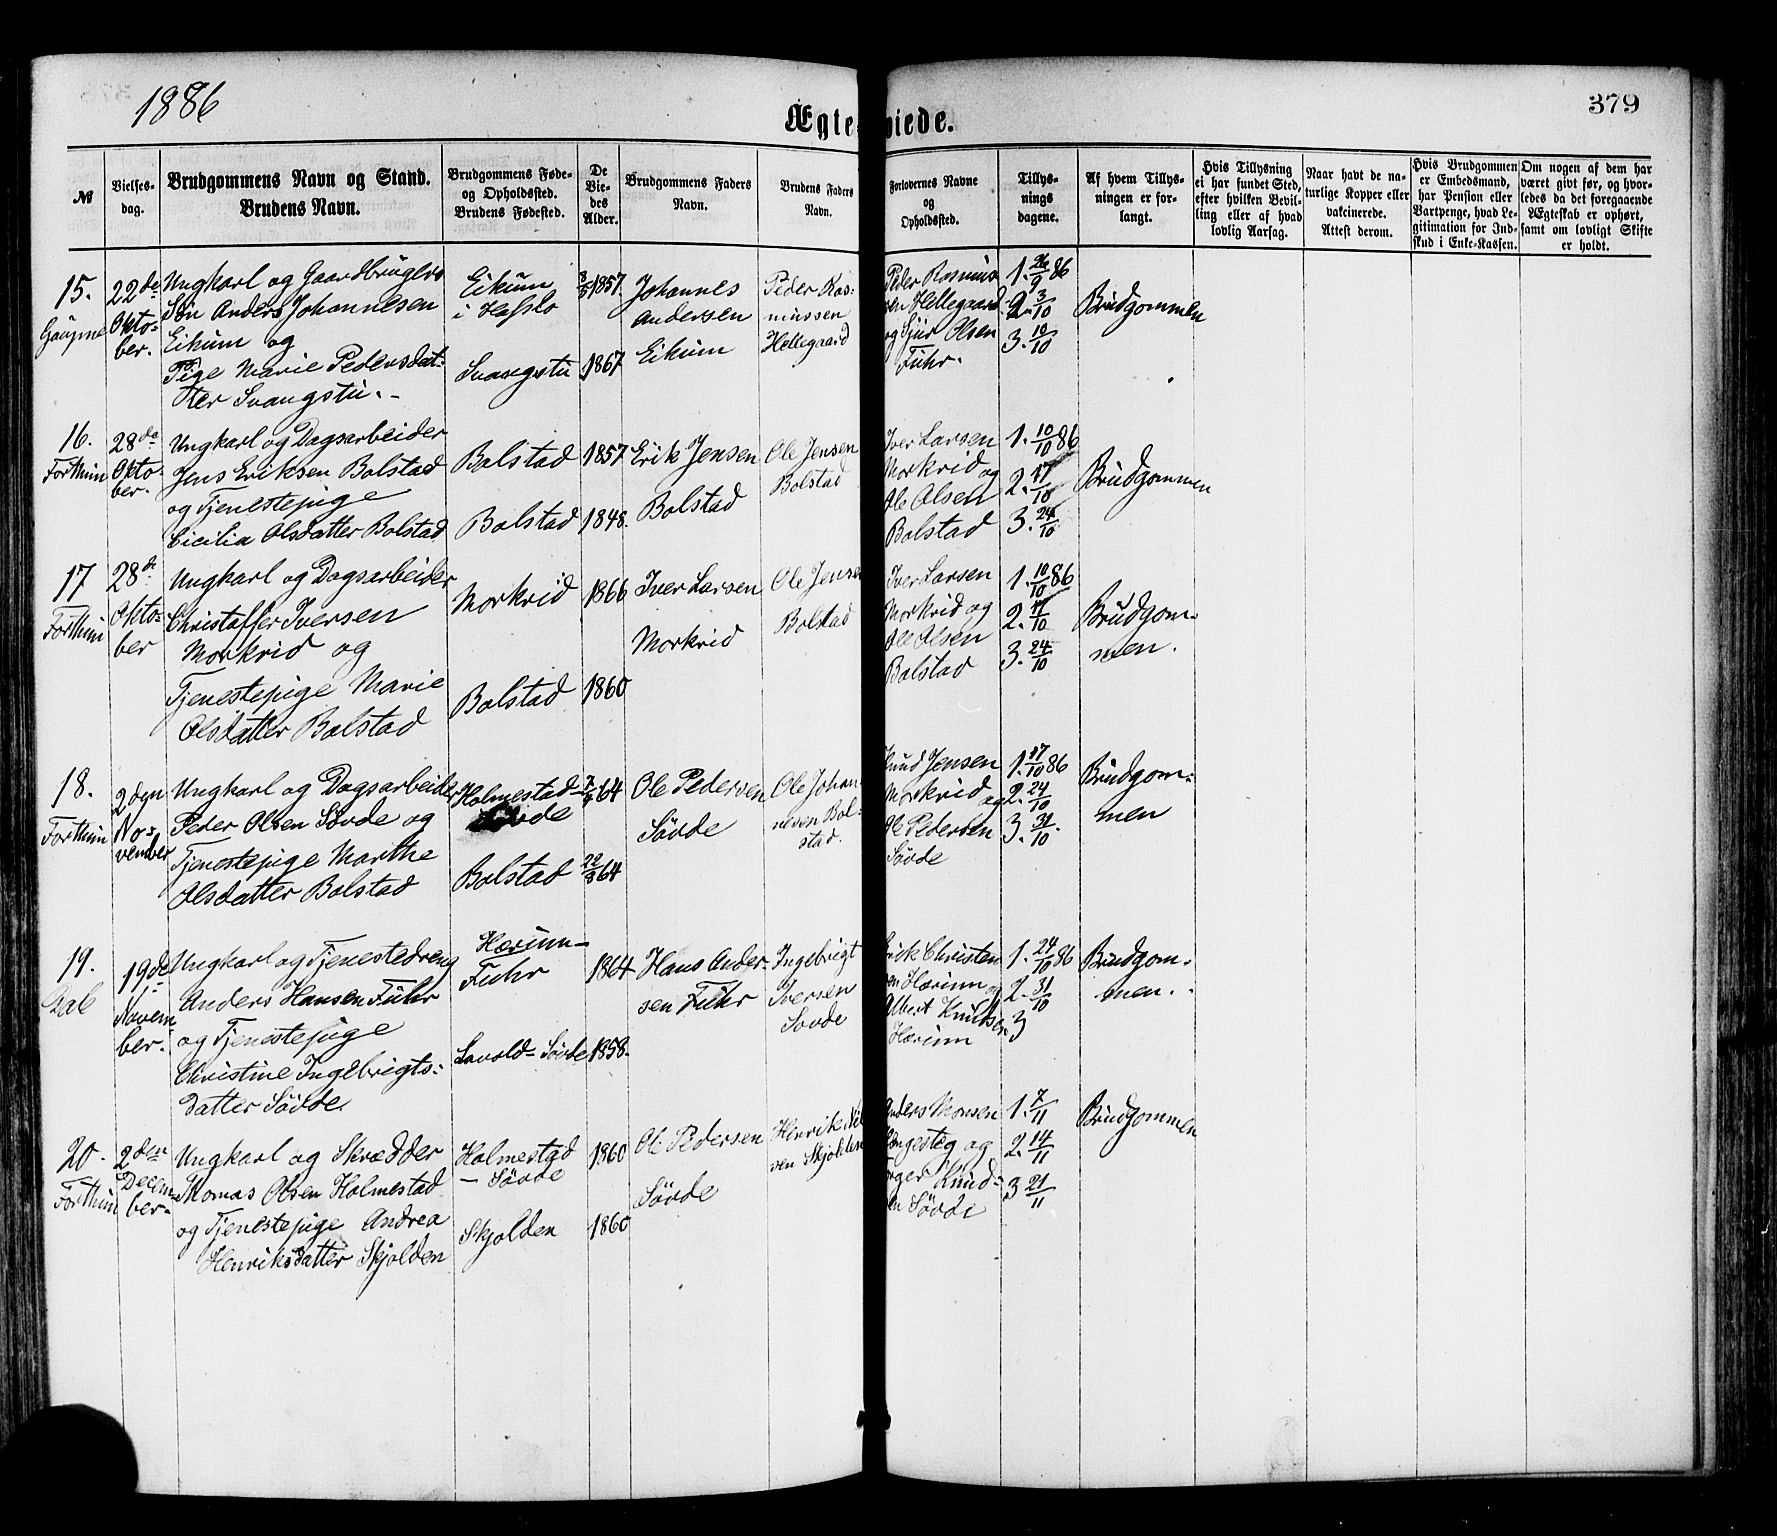 1886
Ægteviede.
379
№
Vielses-
dag.
Brudgommens Navn og Stand.
Brudens Navn.
Brudgommens Føde-
og Opholdssted.
Brudens Fødested.
De
Vie-
des
Alder.
Brudgommens Faders
Navn.
Brudens Faders
Navn.
Forlovernes Navne
og
Opholdssted.
Tillys-
nings
dagene.
Af hvem Tillys-
ningen er for-
langt.
Hvis Tillysning
ei har fundet Sted,
efter hvilken Bevil-
ling eller af hvad
lovlig Aarsag.
Naar havt de na-
turlige Kopper eller
vakcinerede.
Attest derom.
Hvis Brudgommen
er Embedsmand,
har Pension eller
Vartpenge, hvad Le-
gitimation for Ind-
skud i Enke-Kassen.
Om nogen af dem har
været givt før, og hvor-
ledes da det foregaaende
Ægteskab er ophørt,
samt om lovligt Skifte
er holdt.
15.
Gaupne
22de
Okto-
ber.
Ungkarl og Gaardbrugers
Søn Anders Johannesen
Eikum og
Pige Marie Pedersdat-
ter Svangstu.
Eikum
i Hafslo
Svangstu
8/3 1857.
1867
Johannes
Andersen
Eikum
Peder Ras-
mussen
Hellegaard
Peder Rasmus
sen Hellegaard
og Sjur Olsen
Fuhr.
1. 26/9 86
2. 3/10
3. 10/10
Brudgommen
16.
Forthun
28de
Okto-
ber.
Ungkarl og Dagsarbeider
Jens Eriksen Bolstad
og Tjenestepige
Cicilia Olsdatter Bolstad
Bolstad
Bolstad
1857
1848.
Erik Jensen
Bolstad
Ole Jensen
Bolstad
Iver Larsen
Morkrid og
Ole Olsen
Bolstad
1. 10/10 86
2. 17/10
3. 24/10
Brudgommen
17
Forthun
28de
Okto-
ber
Ungkarl og Dagsarbeider
Christaffer Iversen
Morkrid og
Tjenestepige Marie
Olsdatter Bolstad
Morkrid
Bolstad
1866
1860
Iver Larsen
Morkrid
Ole Jense
Bolstad
Iver Larsen
Morkrid og
Ole Olsen
Bolstad
1. 10/10 86
2. 17/10
3. 24/10
Brudgom-
men.
18.
Forthun
2den
No-
vember
Ungkarl og Dagsarbeider
Peder Olsen Søvde og
Tjenestepige Marthe
Olsdatter Bolstad
Holmestad-
Søvde
Bolstad
64
22/8 64
Ole Pedersen
Søvde
Ole Johan-
nesen Bol-
stad.
Knud Jensen
Morkrid og
Ole Pedersen
Søvde
1. 17/10 86
2. 24/10
3. 31/10.
Brudgom-
men
19.
Dale
19de
Novem-
ber.
Ungkarl og Tjenestedreng
Anders Hansen Fuhr
og Tjenestepige
Christine Ingebrigts-
datter Søvde.
Hærum-
Fuhr
Lavold- Søvde
1864
1858.
Hans Ander-
sen Fuhr
Ingebrigt
Iversen
Sovde
Erik Christen
sen Hærum og
Albert Knudsen
Hærum
1. 24/10 86
2. 31/10
3
Brudgom-
men.
20.
Forthun
2den
Decem-
ber.
Ungkarl og Skrædder
Thomas Olsen Holmestad
og Tjenestepige Andrea
Henriksdatter Skjolden
Holmestad
- Søvde
Skjolden
1860
1860
Ole Pedersen
Søvde
Henrik Nil
sen Skjolden
Anders Monsen
og
Knud-
sen Søvde
1. 7/11
2. 14/11
3 21/11
Brudgommen